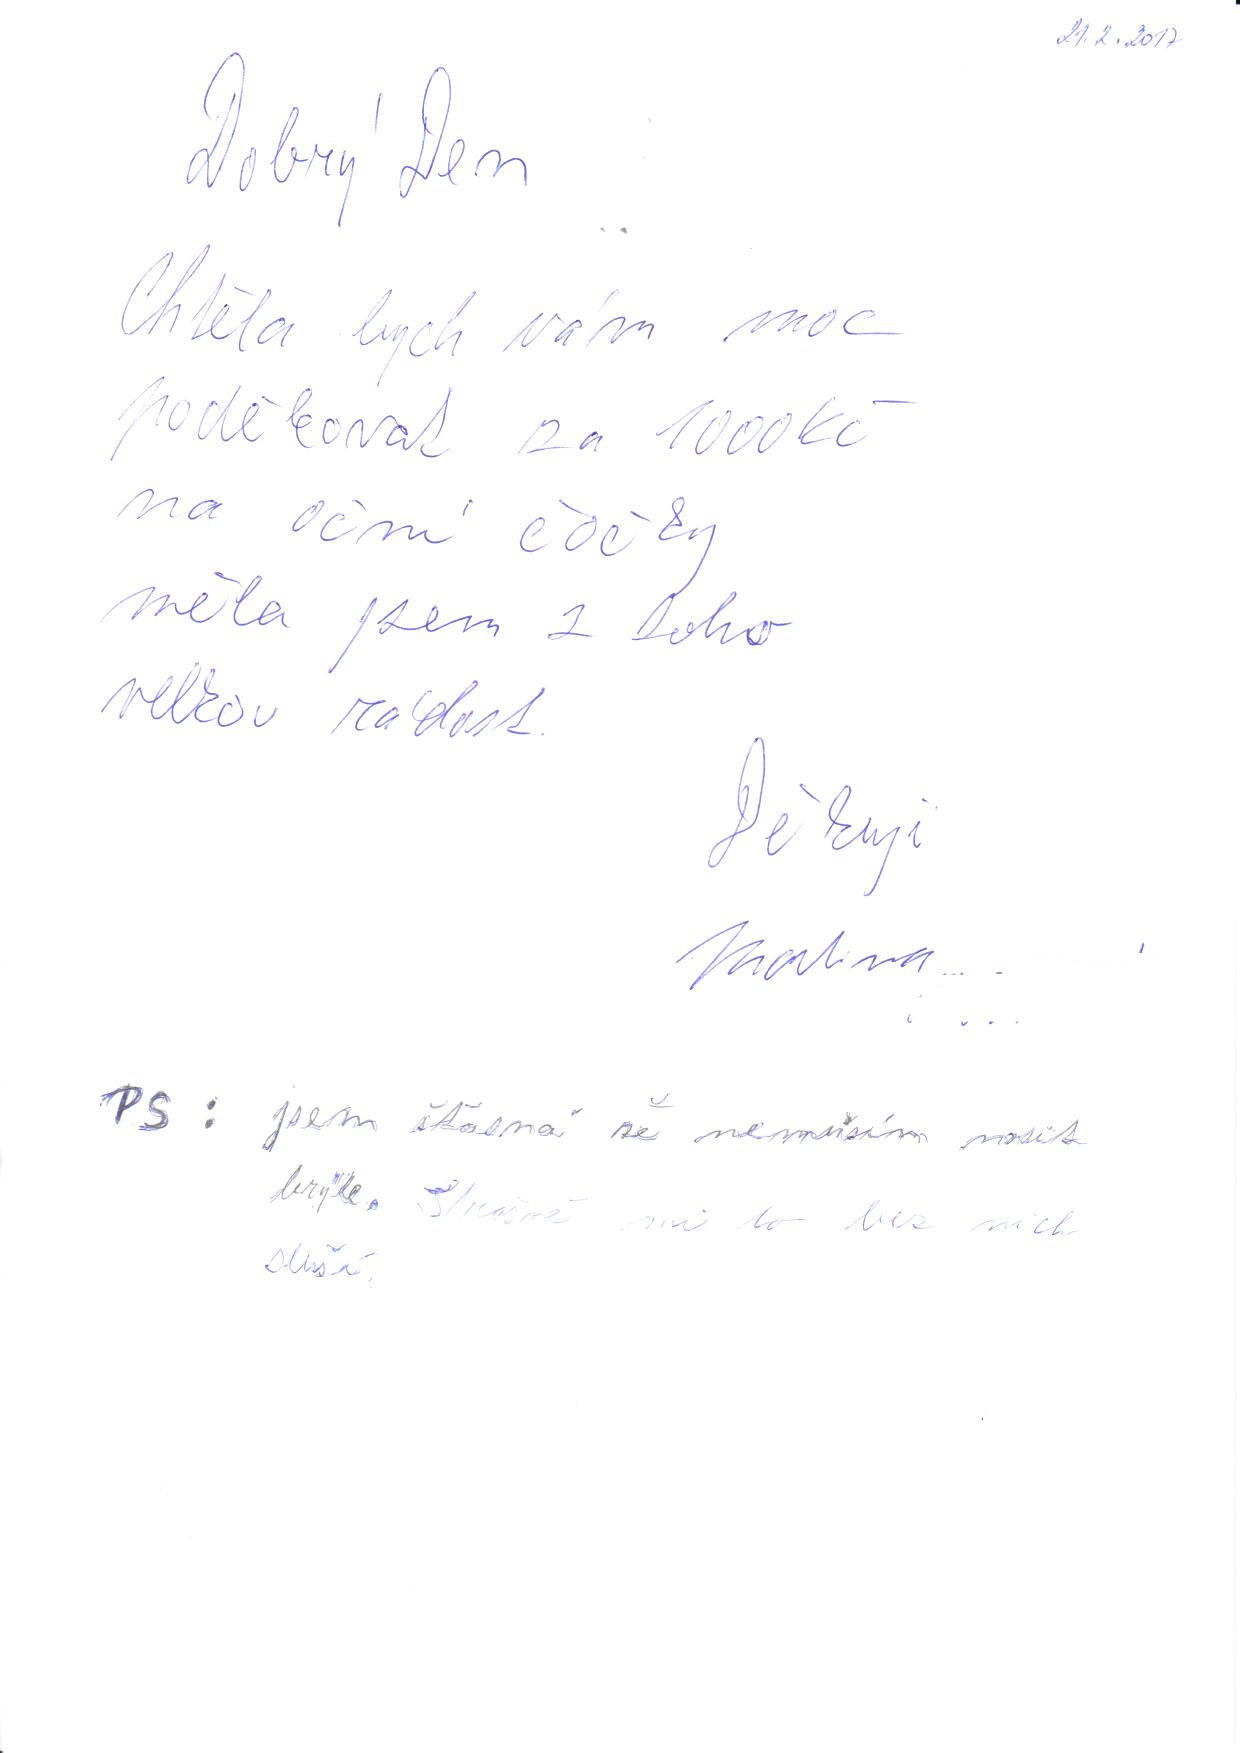 21.2.2017
Dobrý Den
Chtěla bych vám moc
poděkovat za 1000Kč
na oční čočky
měla jsem z toho
velkou rádost.
Děkuji
Martina....
PS: jsem šťasná že nemusím nosit
brýle. Strašně mi to bez nich
sluší.